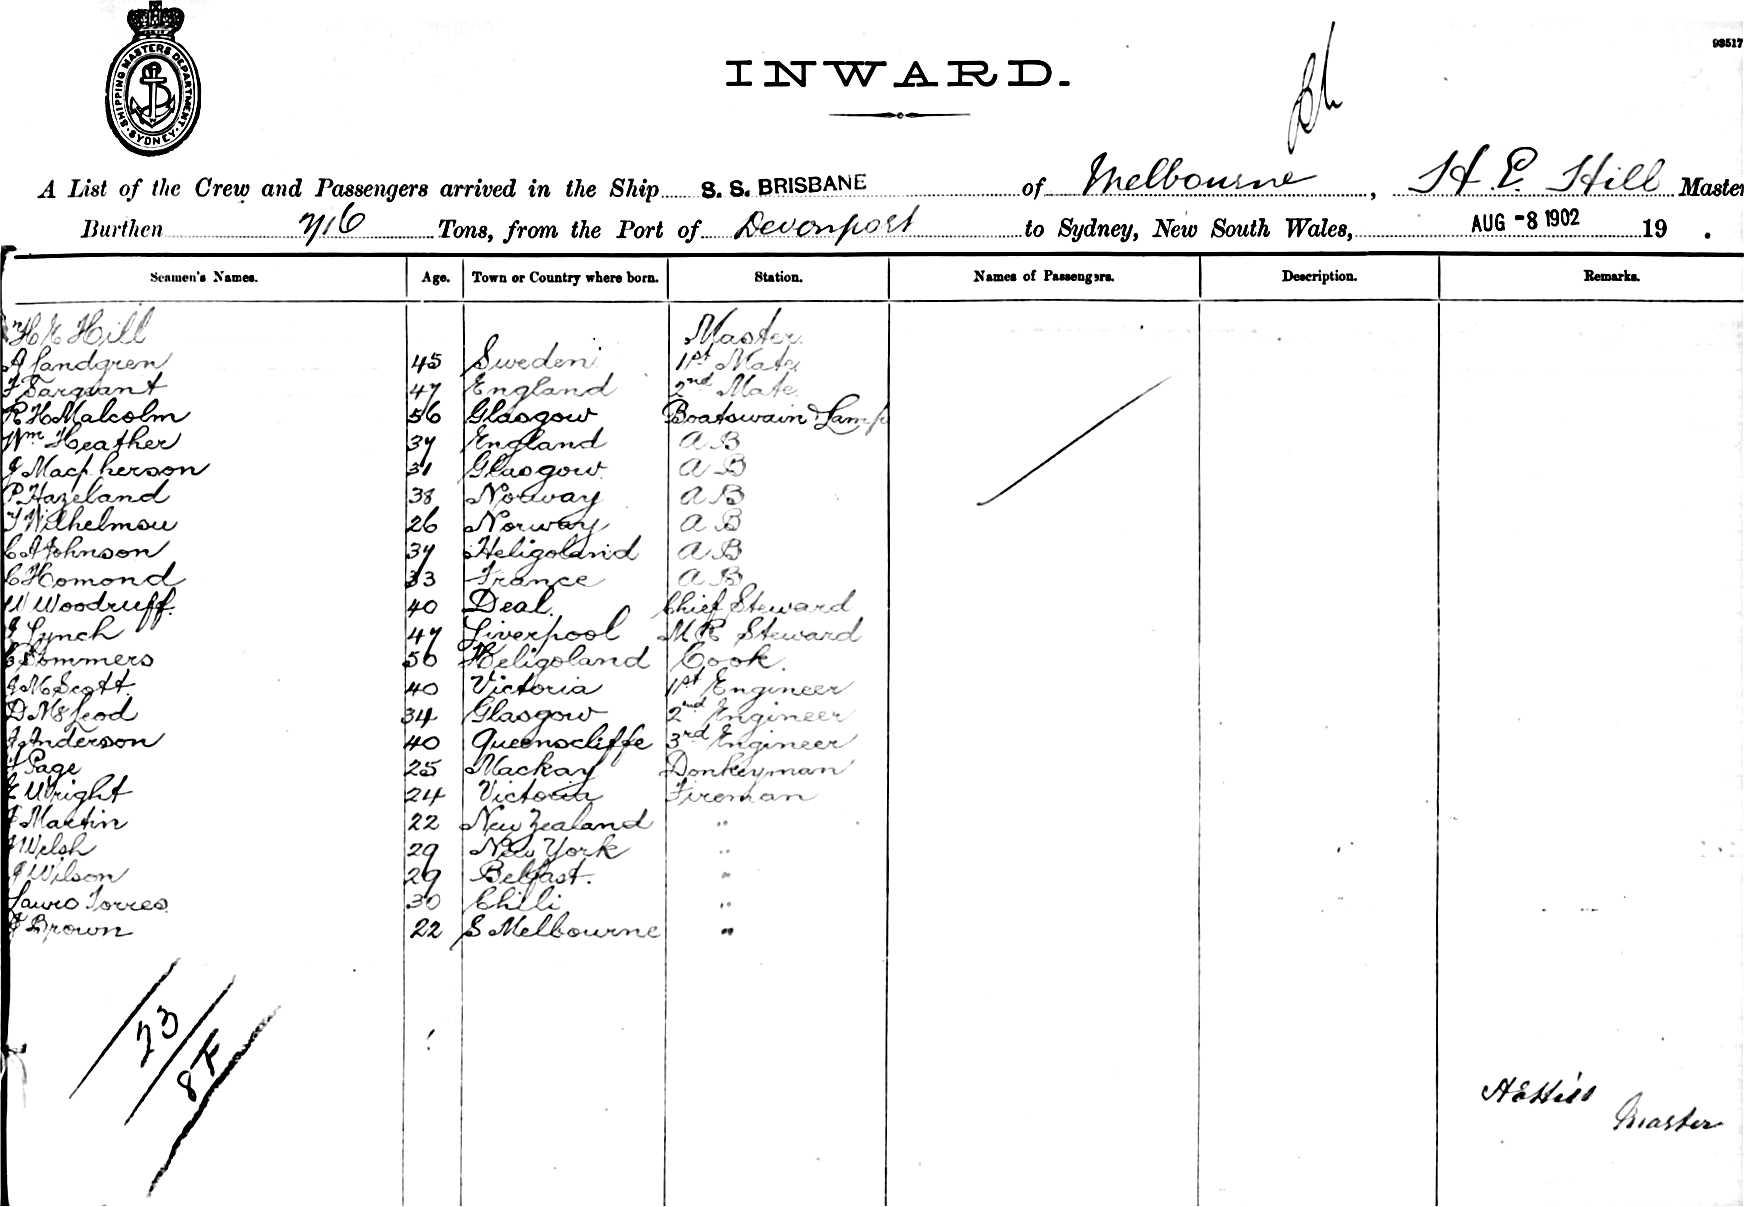 SHIPPING MASTERS DEPARTMENT · SYDNEY ·
93517
INWARD.
A List of the Crew and Passengers arrived in the Ship S. S. BRISBANE of Melbourne, H. E. Hill Master
Burthen 716 Tons, from the Port of Devonport to Sydney, New South Wales, AUG -8 1902 19 .
Seamen's Names. Age. Town or Country where born. Station. Names of Passengers. Description. Remarks.
H E Hill Master
A Sandgren 45 Sweden 1st Mate
F Sarguant 47 England 2nd Mate
R H Malcolm 56 Glasgow Boatswain & Lamp
Wm Heather 37 England A B
J Macpherson 31 Glasgow A B
P. Hazeland 38 Norway A B
T Wilhelmsen 26 Norway A B
C A Johnson 37 Heligoland A B
C Homond 33 France A B
W Woodruff. 40 Deal. Chief Steward
J Lynch 47 Liverpool M R Steward
C Sommers 56 Heligoland Cook.
J M Scott 40 Victoria 1st Engineer
D McLeod 34 Glasgow 2nd Engineer
J Anderson 40 Queenscliffe 3rd Engineer
F Page 25 Mackay Donkeyman
E Wright 24 Victoria Fireman
F Martin 22 New Zealand "
J Welsh 29 New York "
J Wilson 29 Belfast. "
Lauro Torres 30 Chilli "
F Brown 22 S Melbourne "
23
8 F
H E Hill
Master